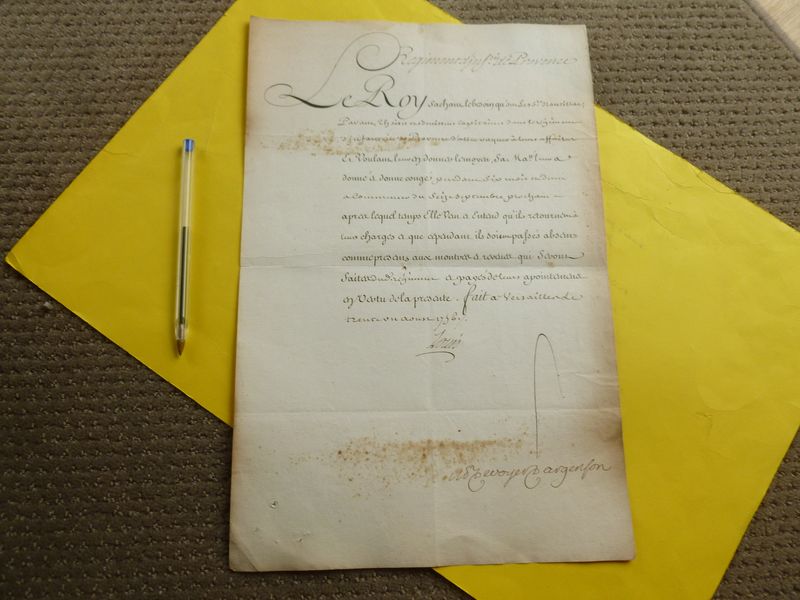 Regiment d'Inf.rie de Provence
Le Roy Sachant le besoin qu'ont les S.rs de
Capitaines dans le Régiment
d'Infanterie de Provence d'aller vaquer à leurs affaires
Et Voulant leur en donner le moyen, Sa Ma.té leur a
donné et donne congé pendant Six mois
a commencer du Seize Septembre prochain
après lequel temps Elle Veut et Entend qu'ils retournent à
leurs charges et que cependant ils soient passés absens
comme presens aux montres et reveues qui Seront
Faites dud. Régiment et payés de leurs apointemens
en Vertu de la presente. Fait a Versailles Le
trente un aoust 1756.
Louis
de Voyer d'argenson